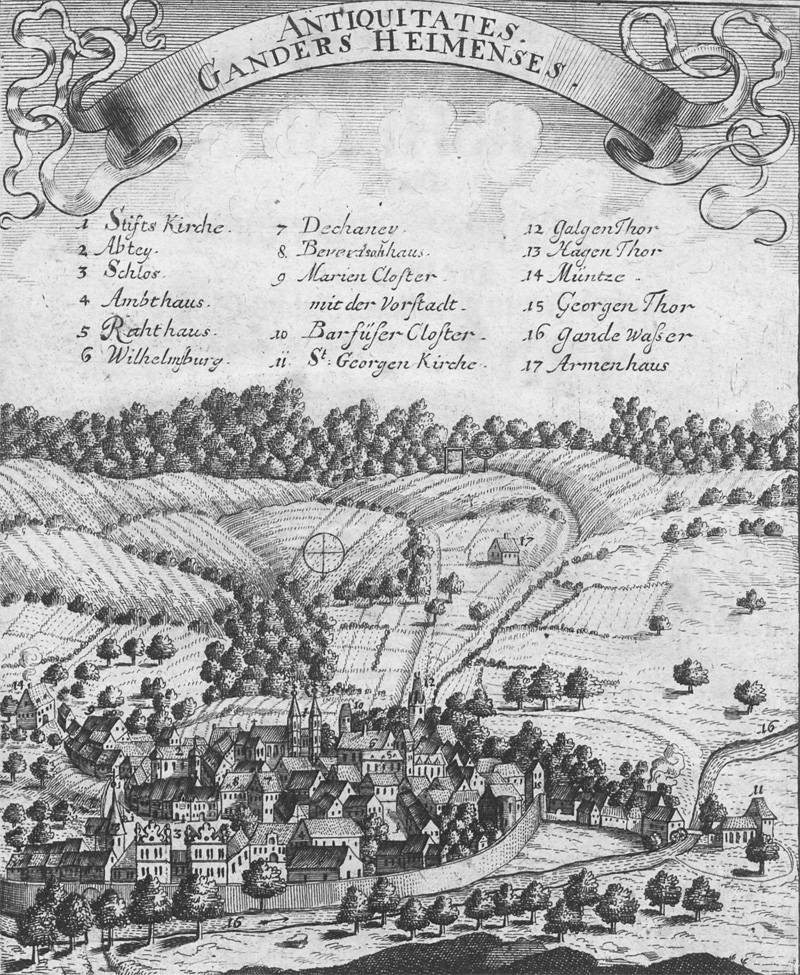 ANTIQUITATES.
GANDERS HEIMENSES.
1 Stifts Kirche.
2 Abtey.
3 Schlos.
4 Ambthaus.
5 Rahthaus.
6 Wilhelmsburg.
7 Dechaney.
8.
9 Marien Closter.
mit der Vorstadt.
10 Barfüser Closter.
11 St: Georgen Kirche.
12 Galgen Thor
13 Hagen Thor
14 Müntze.
15 Georgen Thor
16 Gande Waßer
17 Armenhaus
17
14
9
10
12
6
5
3
16
11
16